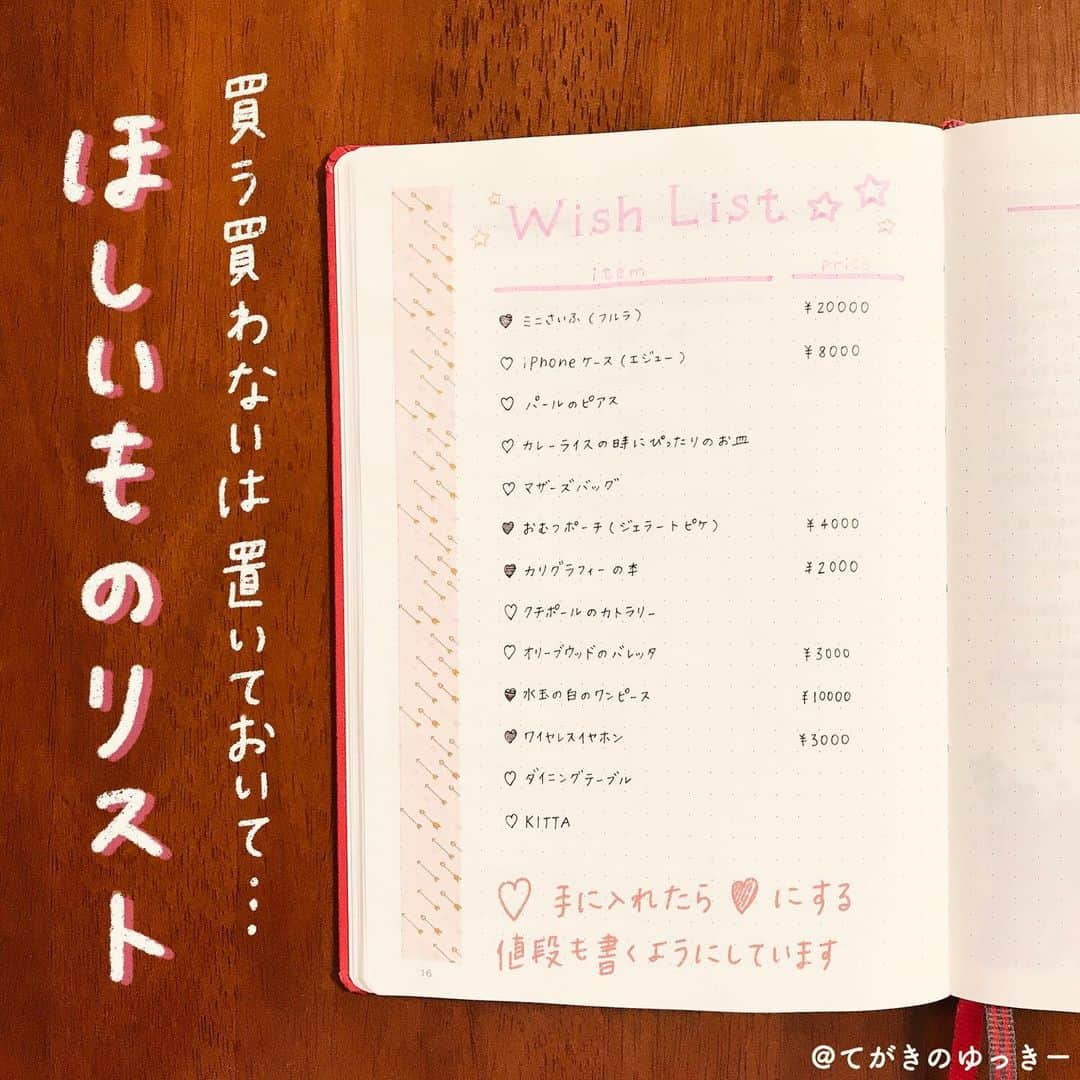 買う買わないは置いておいて…
ほしいものリスト
Wish List
item price
ミニさいふ(フルラ) ¥20000
iPhoneケース(エジュー) ¥8000
パールのピアス
カレーライスの時にぴったりのお皿
マザーズバッグ
おむつポーチ(ジェラートピケ) ¥4000
カリグラフィーの本 ¥2000
クチポールのカトラリー
オリーブウッドのバレッタ ¥3000
水玉の白のワンピース ¥10000
ワイヤレスイヤホン ¥3000
ダイニングテーブル
KITTA
♡ 手に入れたら ♥ にする
値段も書くようにしています
16
@てがきのゆっきー